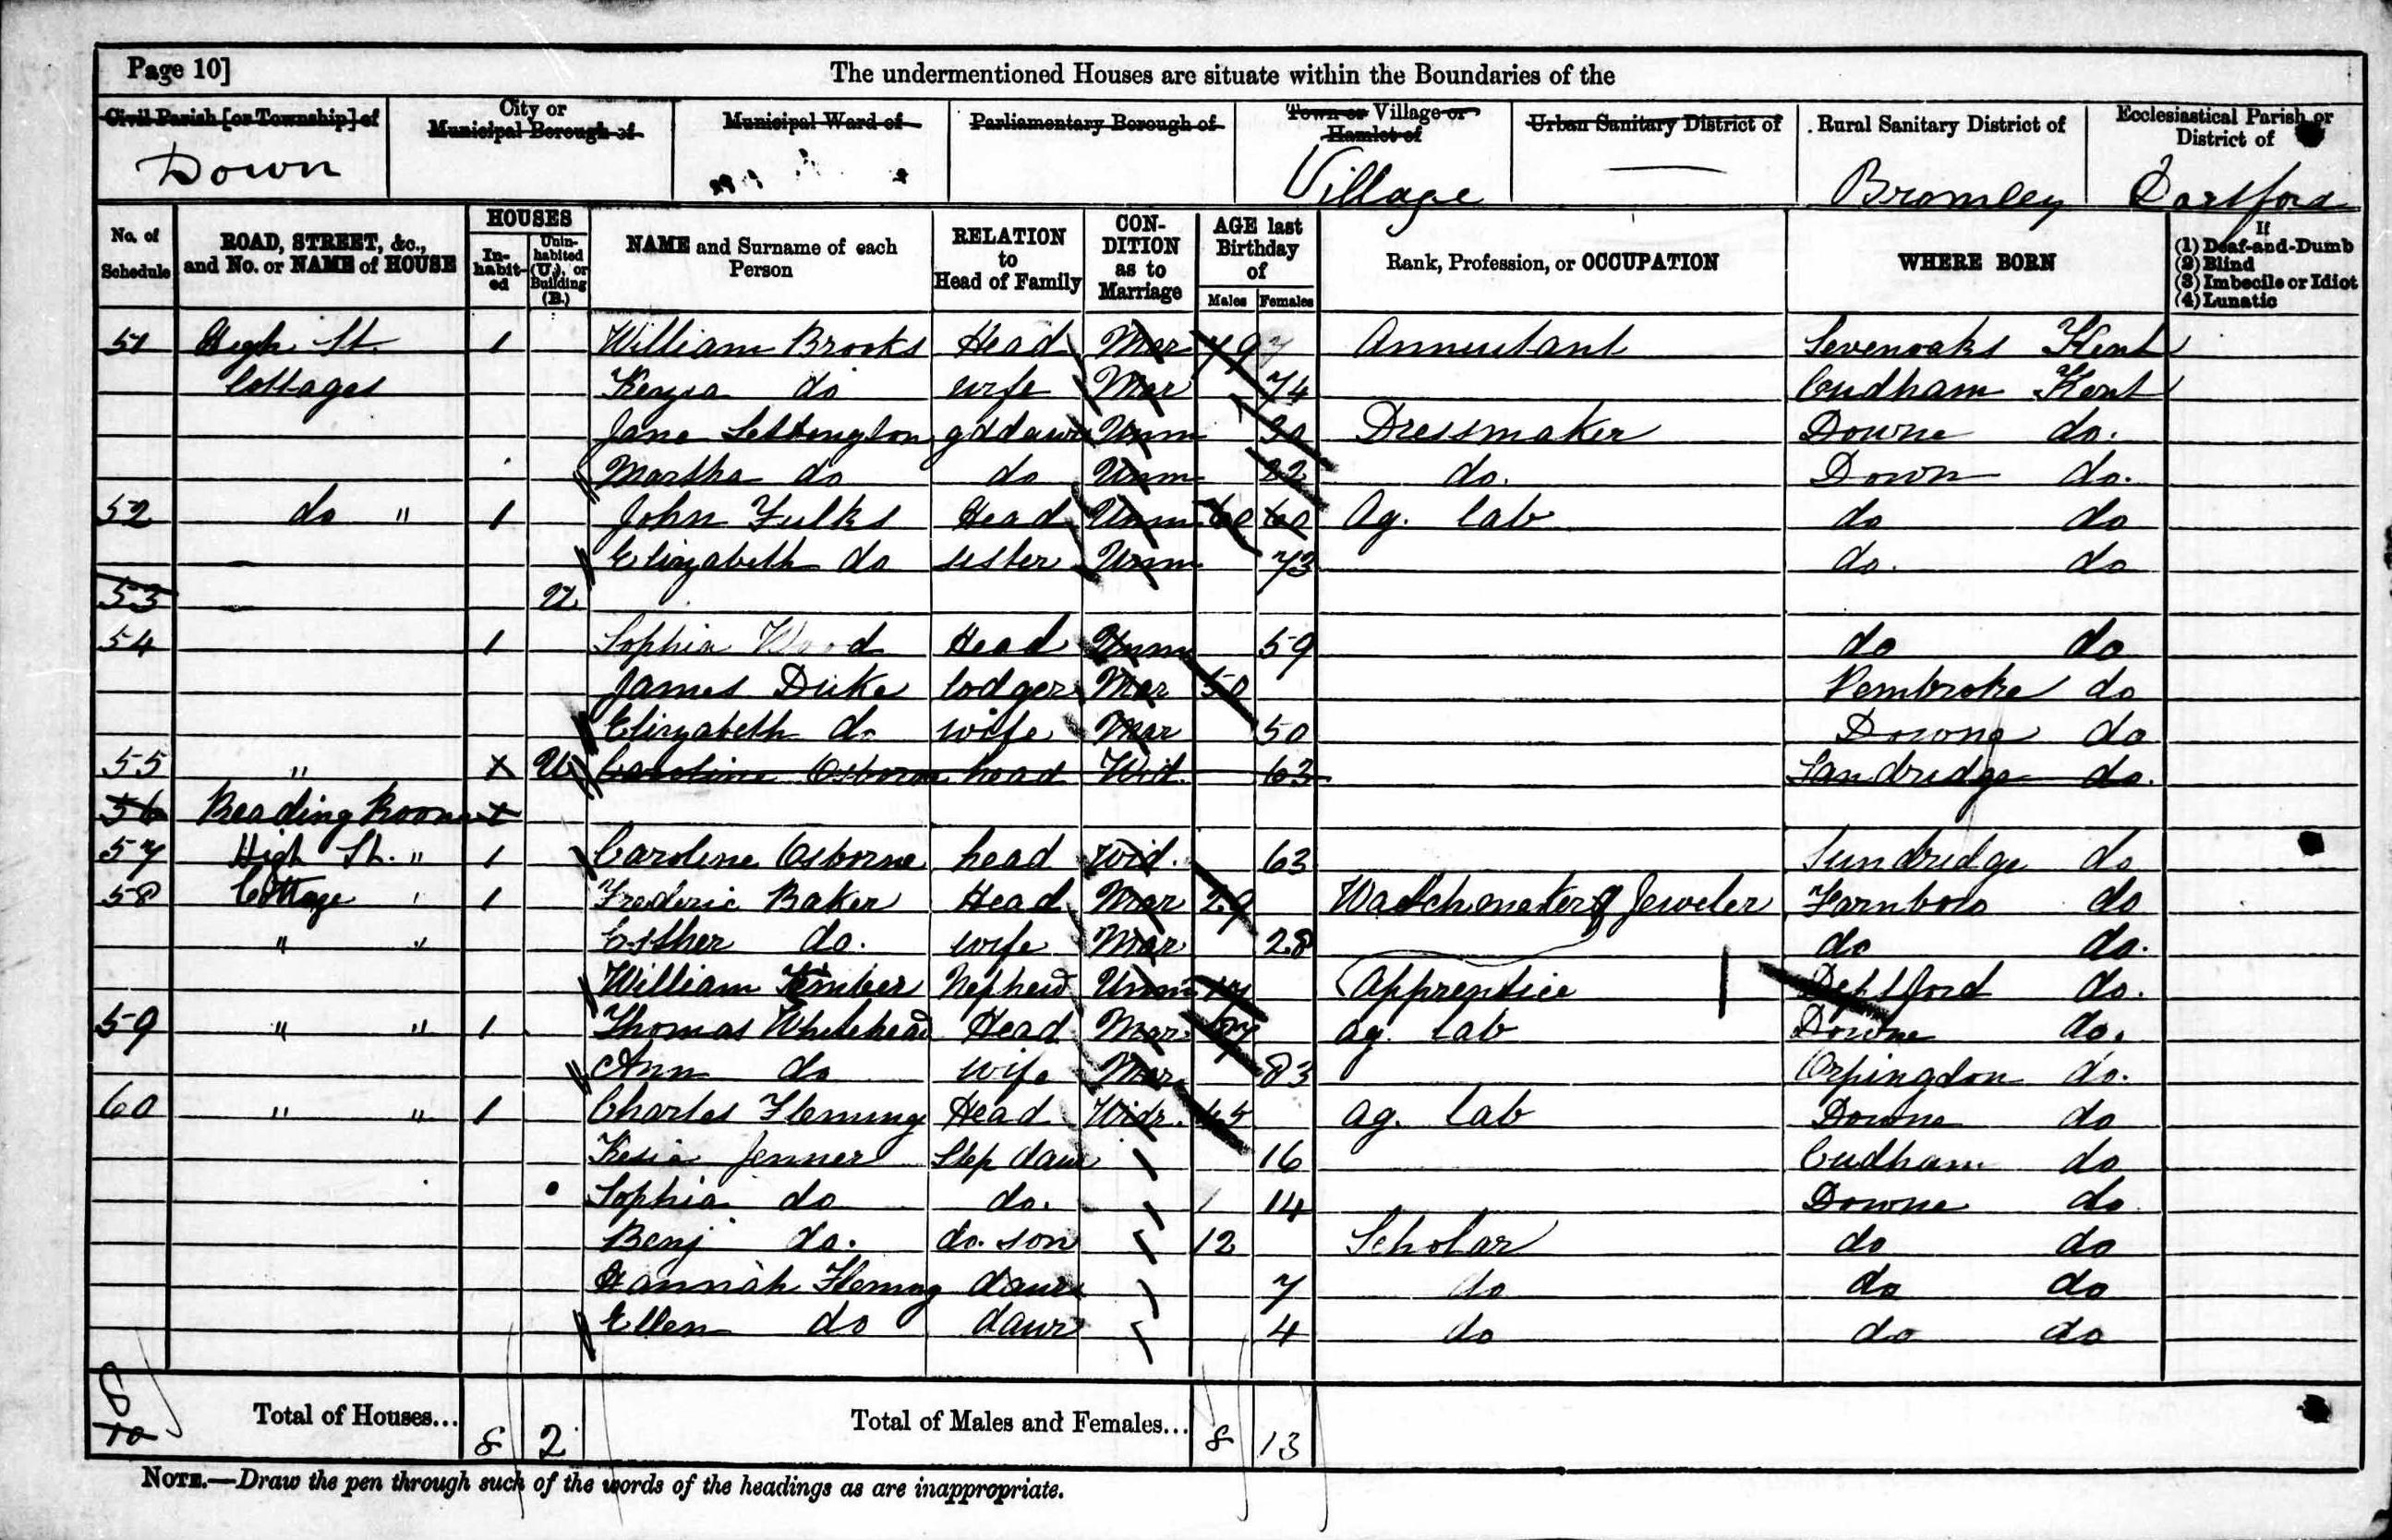 Page 10]
The undermentioned Houses are situate within the Boundaries of the
Civil Parish [or Township] of
City or Municipal Borough of
Municipal Ward of
Parliamentary Borough of
Town or Village or Hamlet of
Urban Sanitary District of
Rural Sanitary District of
Ecclesiastical Parish or District of
Down Village Bromley Dartford
No. of Schedule
ROAD, STREET, &c., and No. or NAME of HOUSE
HOUSES
In-habit-ed
Unin-habited (U.), or Building (B.)
NAME and Surname of each Person
RELATION to Head of Family
CON-DITION as to Marriage
AGE last Birthday of
Males Females
Rank, Profession, or OCCUPATION
WHERE BORN
If
(1) Deaf-and-Dumb
(2) Blind
(3) Imbecile or Idiot
(4) Lunatic
51 High St. 1 William Brooks Head Mar 79 Annuitant Sevenoaks Kent
Cottages Kezia do wife Mar 74 Cudham Kent
Jane Lettington gddaur Unm 30 Dressmaker Downe do.
Martha do do Unm 22 do. Down do.
52 do " 1 John Fulks Head Unm 60 60 Ag. lab do do
Elizabeth do sister Unm 73 do. do
53 U
54 1 Sophia Wood Head Unm 59 do do
James Duke lodger Mar 50 Pembroke do
Elizabeth do wife Mar 50 Downe do
55 " x U Caroline Osborne head Wid. 63 Sandridge do.
56 Reading Room x
57 High St. " 1 Caroline Osborne head Wid. 63 Sundridge do
58 Cottage " 1 Frederic Baker Head Mar 29 Watchmaker & Jeweler Farnboro do
" " Esther do. wife Mar 28 do do.
William Kember Nephew Unm Apprentice Deptford do.
59 " " 1 Thomas Whitehead Head Mar ag. lab Downe do.
Ann do wife Mar 83 Orpingdon do.
60 " " 1 Charles Fleming Head Widr. 65 ag. lab Downe do
Kesia Jenner Step daur 16 Cudham do
Sophia do do. 14 Downe do
Benj do. do. son 12 Scholar do do
Hannah Fleming daur 7 do do do
Ellen do daur 4 do do do
8
10
Total of Houses... 8 2 Total of Males and Females... 8 13
NOTE.—Draw the pen through such of the words of the headings as are inappropriate.